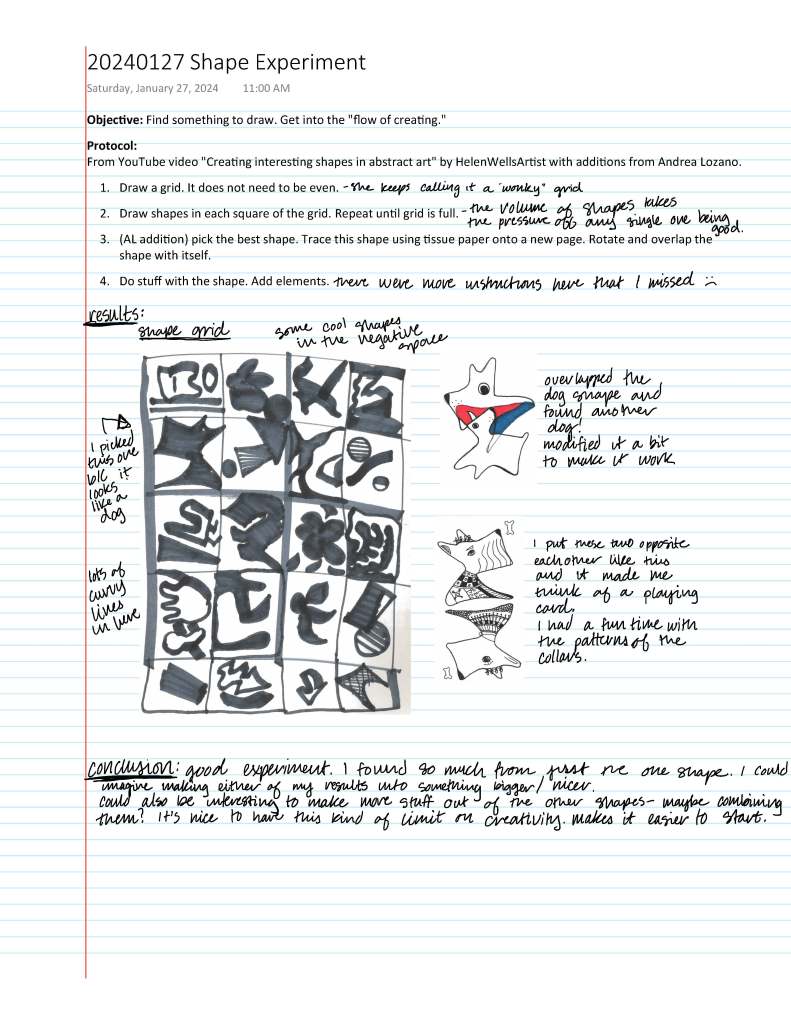 20240127 Shape Experiment
Saturday, January 27, 2024 11:00 AM
Objective: Find something to draw. Get into the "flow of creating."
Protocol:
From YouTube video "Creating interesting shapes in abstract art" by HelenWellsArtist with additions from Andrea Lozano.
1. Draw a grid. It does not need to be even. - she keeps calling it a "wonky" grid
2. Draw shapes in each square of the grid. Repeat until grid is full. - the volume of shapes takes
the pressure off any single one being
good.
3. (AL addition) pick the best shape. Trace this shape using tissue paper onto a new page. Rotate and overlap the
shape with itself.
4. Do stuff with the shape. Add elements. there were more instructions here that I missed :(
results:
shape grid
some cool shapes
in the negative
space
I picked
this one
b/c it
looks
like a
dog
lots of
curvy
lines
in here
overlapped the
dog shape and
found another
dog!
modified it a bit
to make it work
I put these two opposite
each other like this
and it made me
think of a playing
card.
I had a fun time with
the patterns of the
collars.
conclusion: good experiment. I found so much from just the one shape. I could
imagine making either of my results into something bigger/nicer.
could also be interesting to make more stuff out of the other shapes - maybe combining
them? It's nice to have this kind of limit on creativity. makes it easier to start.